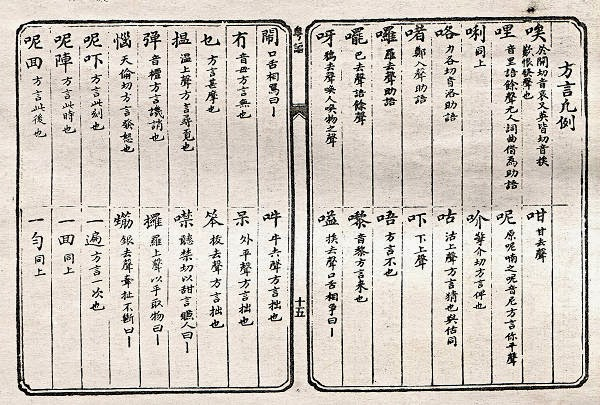 方言凡例
唉 於開切音哀又英皆切音挨歎恨發聲也
哩 音里語餘聲元人詞曲借為助語
唎 同上
咯 力各切音洛助語
啫 鄭入聲助語
囉 羅去聲助語
罷 巴去聲語餘聲
呀 鴉去聲喚人喚物之聲
咁 甘去聲
呢 原呢喃之呢音尼方言你平聲
吤 華介切方言件也
咕 沽上聲方言猜也與估同
吓 下上聲
唔 方言不也
嚟 音黎方言來也
嗌 挨去聲口舌相爭曰一
粵謳
十五
鬧 口舌相罵曰一
冇 音毋方言無也
乜 方言甚麼也
揾 溫上聲方言尋覓也
彈 音檀方言譏誚也
惱 天倫切方言發怒也
呢吓 方言此刻也
呢陣 方言此時也
呢囬 方言此後也
吽 牛去聲方言拙也
呆 外平聲方言拙也
笨 板去聲方言拙也
噤 聽禁切以甜言賺人曰一
攞 羅上聲以手取物曰一
銀去聲牽扯不斷曰一
一遍 方言一次也
一囬 同上
一勻 同上